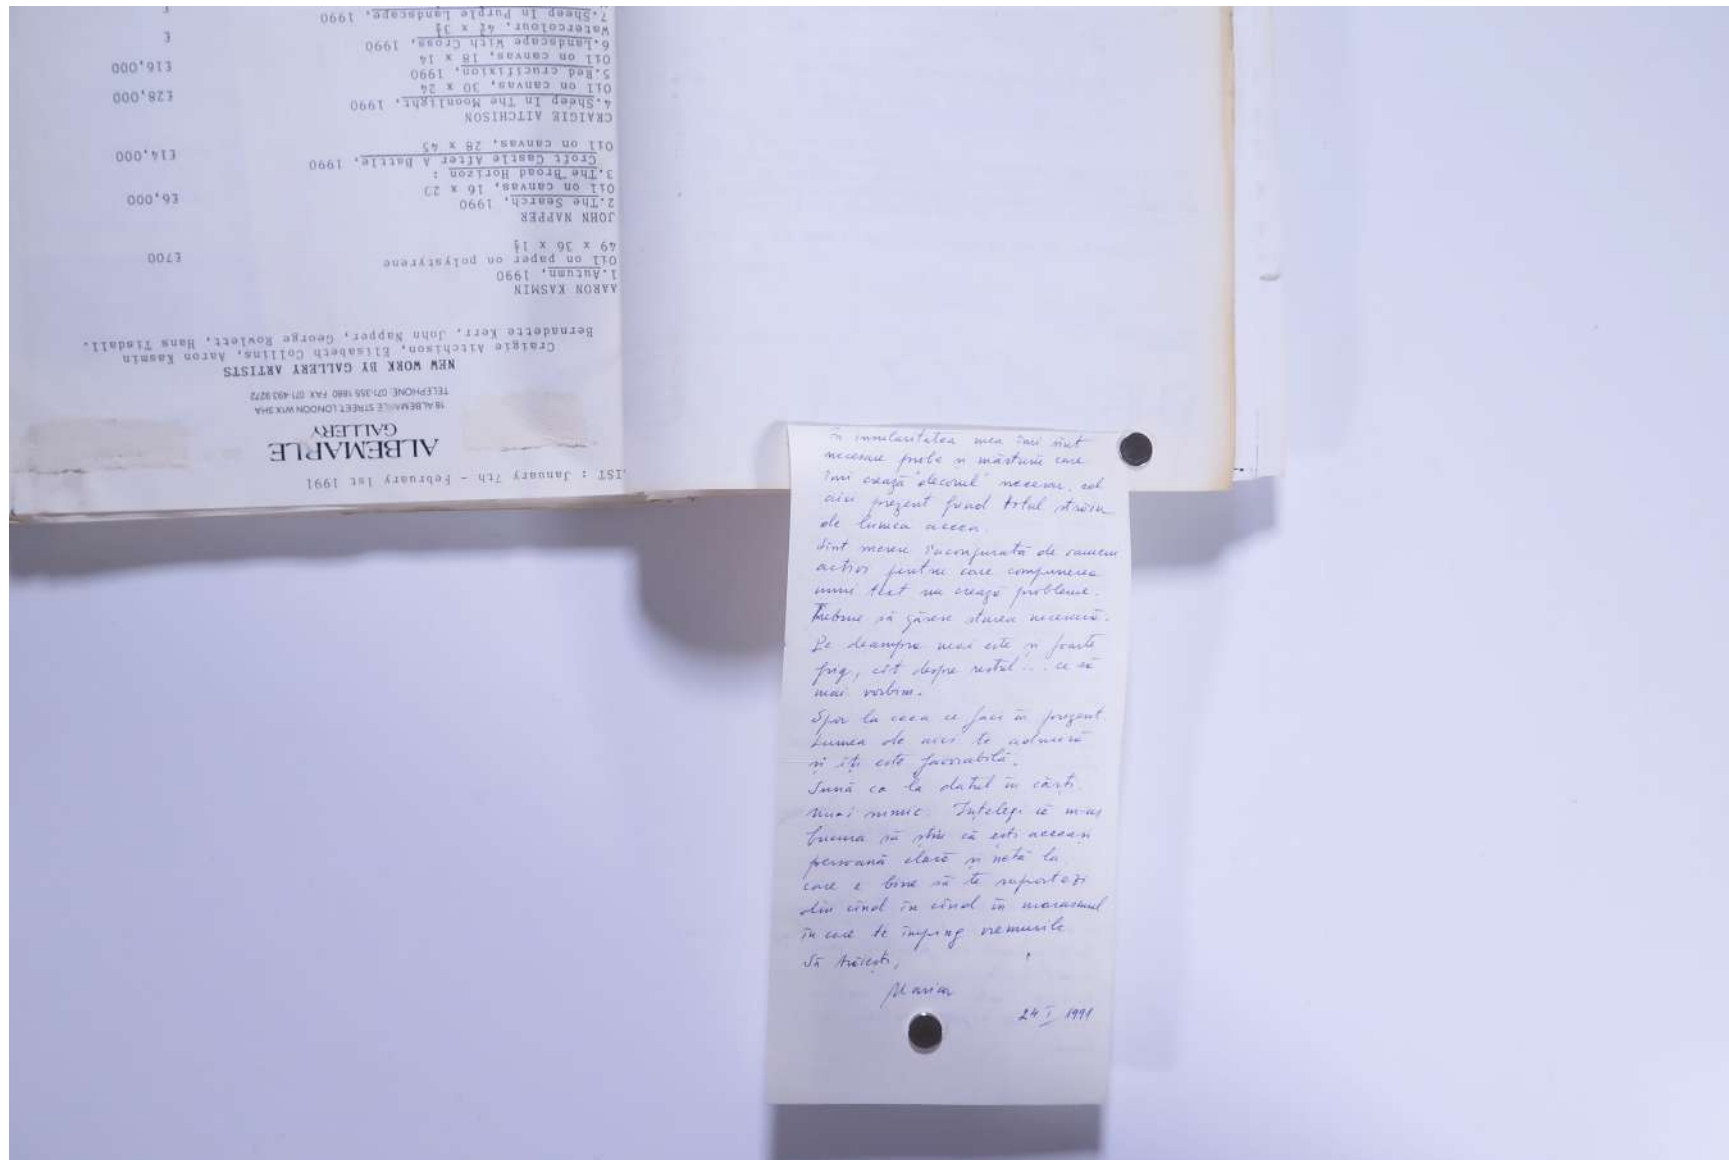 LIST : January 7th - February 1st 1991
ALBEMARLE
GALLERY
18 ALBEMARLE STREET LONDON W1X 3HA
TELEPHONE 071-355 1880 FAX 071-493 9272
NEW WORK BY GALLERY ARTISTS
Craigie Aitchison, Elisabeth Collins, Aaron Kasmin
Bernadette Kerr, John Napper, George Rowlett, Hans Tisdall.
AARON KASMIN
1.Autumn, 1990
Oil on paper on polystyrene £700
49 x 36 x 1½
JOHN NAPPER
2.The Search, 1990
Oil on canvas, 16 x 20 £6,000
3.The Broad Horizon :
Croft Castle After A Battle, 1990
Oil on canvas, 28 x 45 £14,000
CRAIGIE AITCHISON
4.Sheep In The Moonlight, 1990
Oil on canvas, 30 x 24 £28,000
5.Red crucifixion, 1990
Oil on canvas, 18 x 14 £16,000
6.Landscape With Cross, 1990
Watercolour, £
7.Sheep In Purple Landscape, 1990
În mea îmi sînt
necesare probe și mărturii care
îmi crează "decorul" necesar, cel
aici prezent fiind total străin
de lumea aceea.
Sînt mereu înconjurată de oameni
activi pentru care compunerea
unui text nu crează probleme.
Trebuie să găsesc starea necesară.
Pe deasupra mai este și foarte
frig, cît despre restul... ce să
mai vorbim.
Spor la ceea ce faci în prezent.
Lumea de aici te admiră
și îți este favorabilă.
Sună ca la datul în cărți.
Mai nimic. Înțelegi că m-aș
bucura să știu că ești aceeași
persoană clară și netă la
care e bine să te raportezi
din cînd în cînd în marasmul
în care te împing vremurile
Să trăiești,
24 I 1991